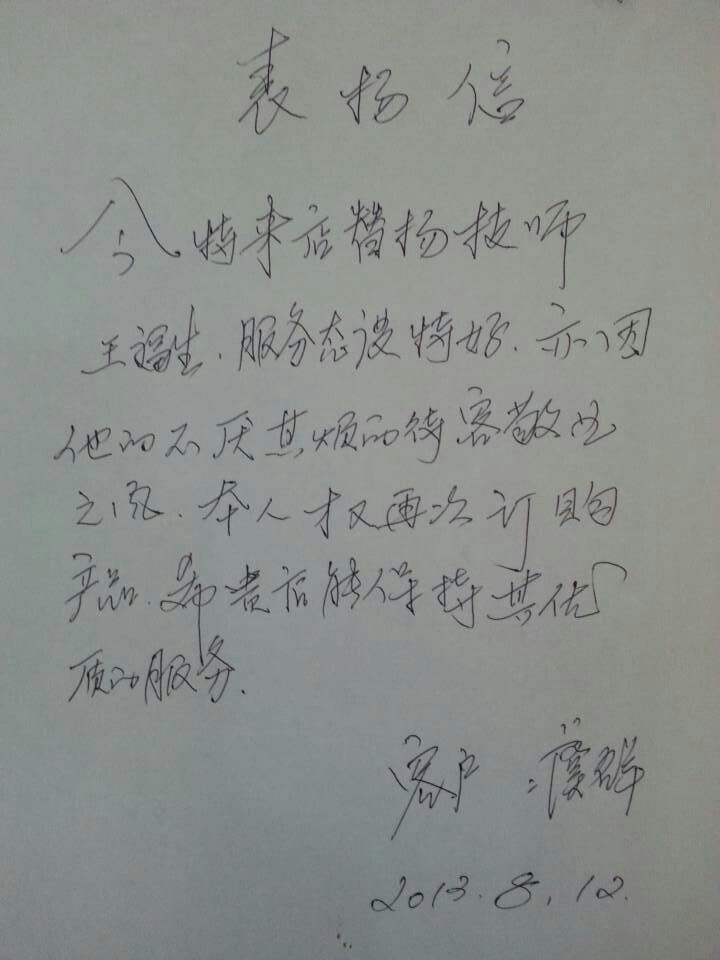 表扬信
今特来店替扬技师
王福生.服务态度特好.亦因
他的不厌其烦的待客敬业
之风.本人才又再次订购
产品.希贵店能保持其优
质的服务.
客户 群
2013.8.12.